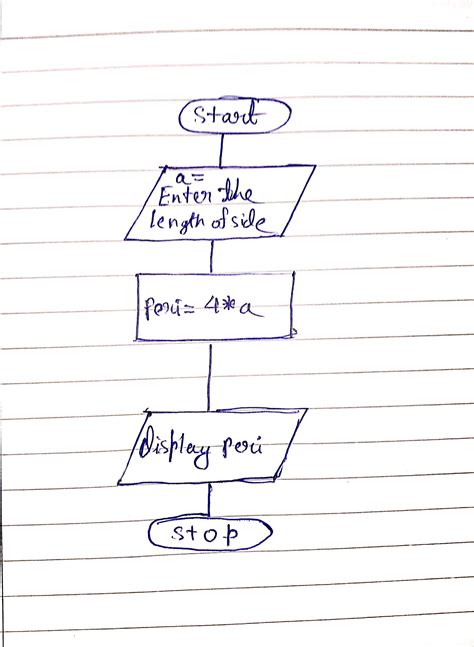 Start
a=
Enter the
length of side
Peri= 4*a
Display peri
stop